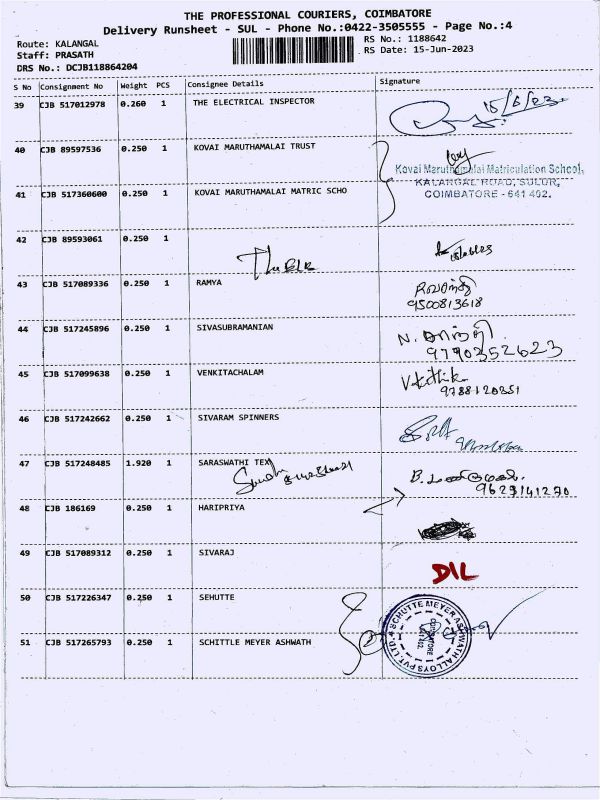 THE PROFESSIONAL COURIERS, COIMBATORE
Delivery Runsheet - SUL - Phone No.:0422-3505555 - Page No.:4
Route: KALANGAL RS No.: 1188642
Staff: PRASATH RS Date: 15-Jun-2023
DRS No.: DCJB118864204
S No Consignment No Weight PCS Consignee Details Signature
39 CJB 517012978 0.260 1 THE ELECTRICAL INSPECTOR 15/6/23
40 CJB 89597536 0.250 1 KOVAI MARUTHAMALAI TRUST
Kovai Maruthamalai Matriculation School,
KALANGAL ROAD, SULUR,
COIMBATORE - 641 402.
41 CJB 517360600 0.250 1 KOVAI MARUTHAMALAI MATRIC SCHO
42 CJB 89593061 0.250 1
43 CJB 517089336 0.250 1 RAMYA
9500813618
44 CJB 517245896 0.250 1 SIVASUBRAMANIAN
N. சாந்தி
9790352623
45 CJB 517099638 0.250 1 VENKITACHALAM
9788120351
46 CJB 517242662 0.250 1 SIVARAM SPINNERS
47 CJB 517248485 1.920 1 SARASWATHI TEX
9629141270
48 CJB 186169 0.250 1 HARIPRIYA
49 CJB 517089312 0.250 1 SIVARAJ D/L
50 CJB 517226347 0.250 1 SEHUTTE
51 CJB 517265793 0.250 1 SCHITTLE MEYER ASHWATH
SCHUTTE MEYER ASHWATH ALLOYS PVT. LTD.
COIMBATORE